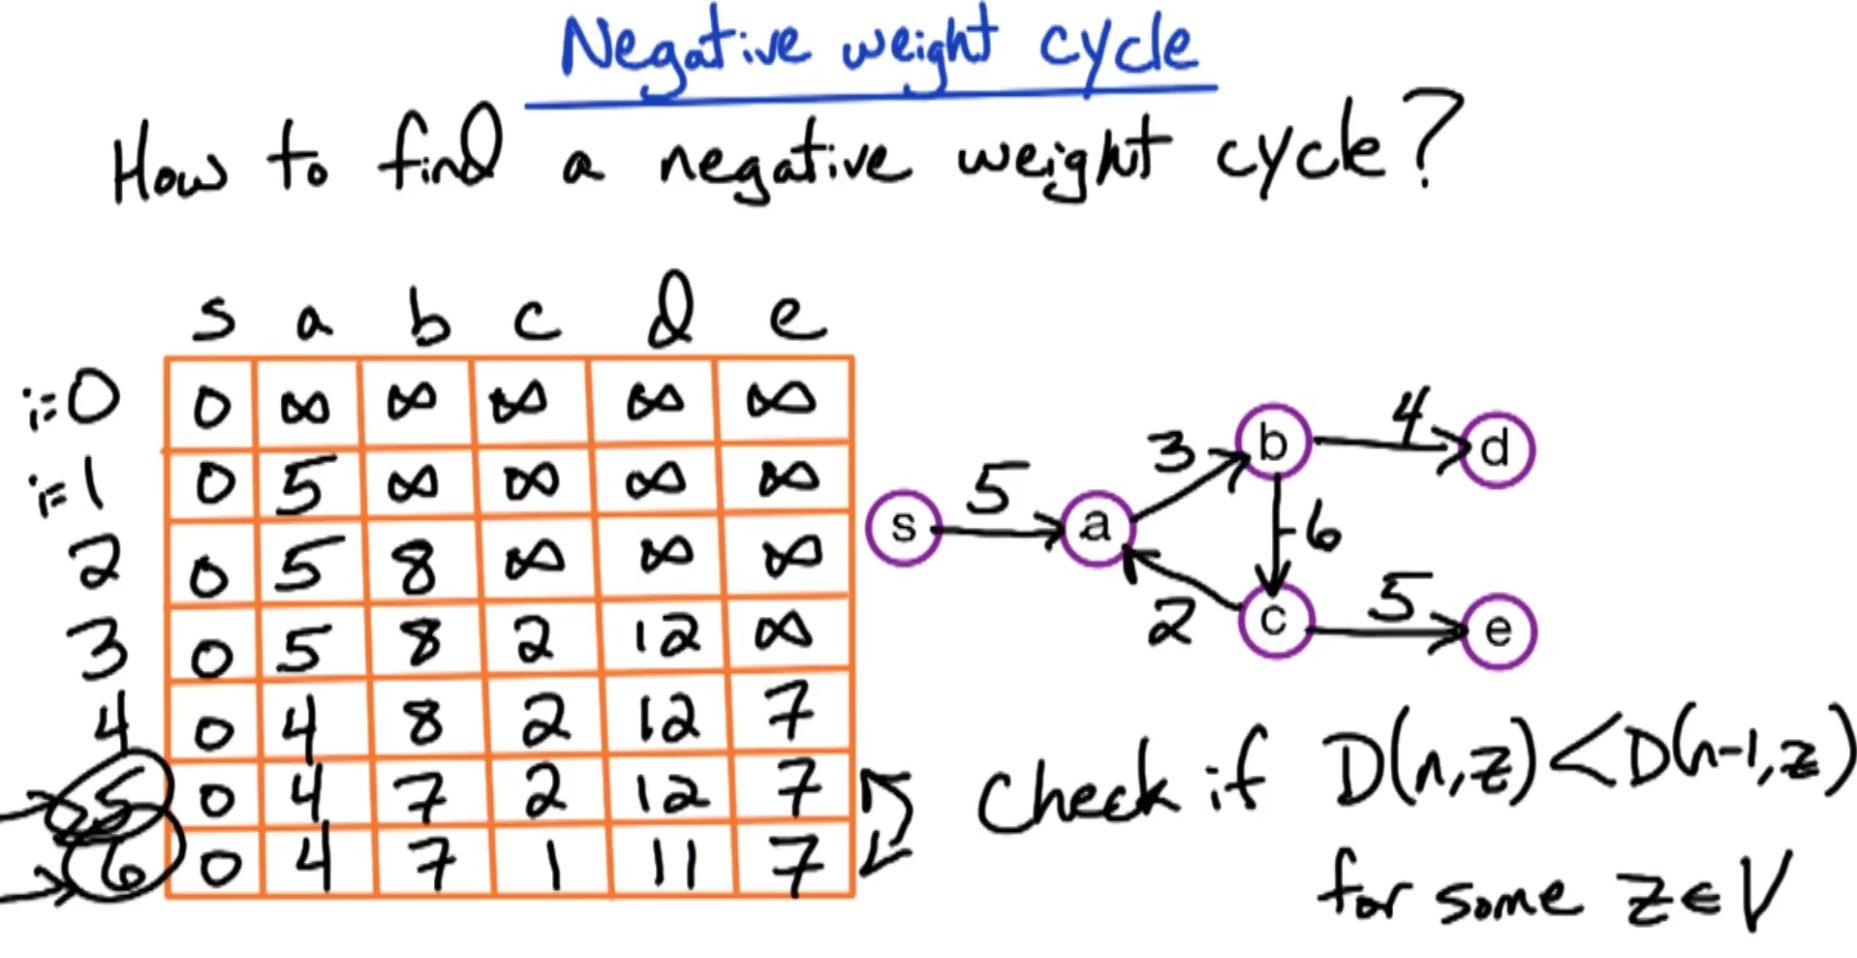 Negative weight cycle
How to find a negative weight cycle?
s a b c d e
i=0 0 ∞ ∞ ∞ ∞ ∞
i=1 0 5 ∞ ∞ ∞ ∞
2 0 5 8 ∞ ∞ ∞
3 0 5 8 2 12 ∞
4 0 4 8 2 12 7
5 0 4 7 2 12 7
6 0 4 7 1 11 7
b 4 d
3
5
s a -6
2 c 5 e
Check if D(n,z) < D(n-1,z)
for some z ∈ V